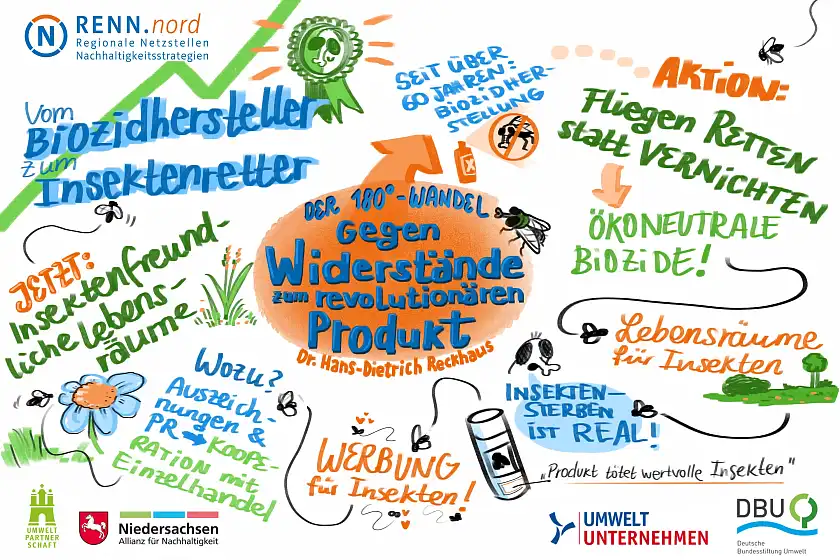 RENN.nord
Regionale Netzstellen
Nachhaltigkeitsstrategien
Vom
Biozidhersteller
zum
Insektenretter
SEIT ÜBER
60 JAHREN:
BIOZIDHER-
STELLUNG
AKTION:
Fliegen RETTEN
statt VERNICHTEN
ÖKONEUTRALE
BIOZIDE!
DER 180°-WANDEL
Gegen
Widerstände
zum revolutionären
Produkt
Dr. Hans-Dietrich Reckhaus
JETZT:
Insektenfreund-
liche lebens-
räume
Lebensräume
für Insekten
WOZU?
Auszeich-
nungen &
PR → KOOPE-
RATION mit
Einzelhandel
WERBUNG
für Insekten!
INSEKTEN-
STERBEN
ist REAL!
„Produkt tötet wertvolle Insekten"
UMWELT
PARTNER
SCHAFT
Niedersachsen
Allianz für Nachhaltigkeit
UMWELT
UNTERNEHMEN
DBU
Deutsche
Bundesstiftung Umwelt